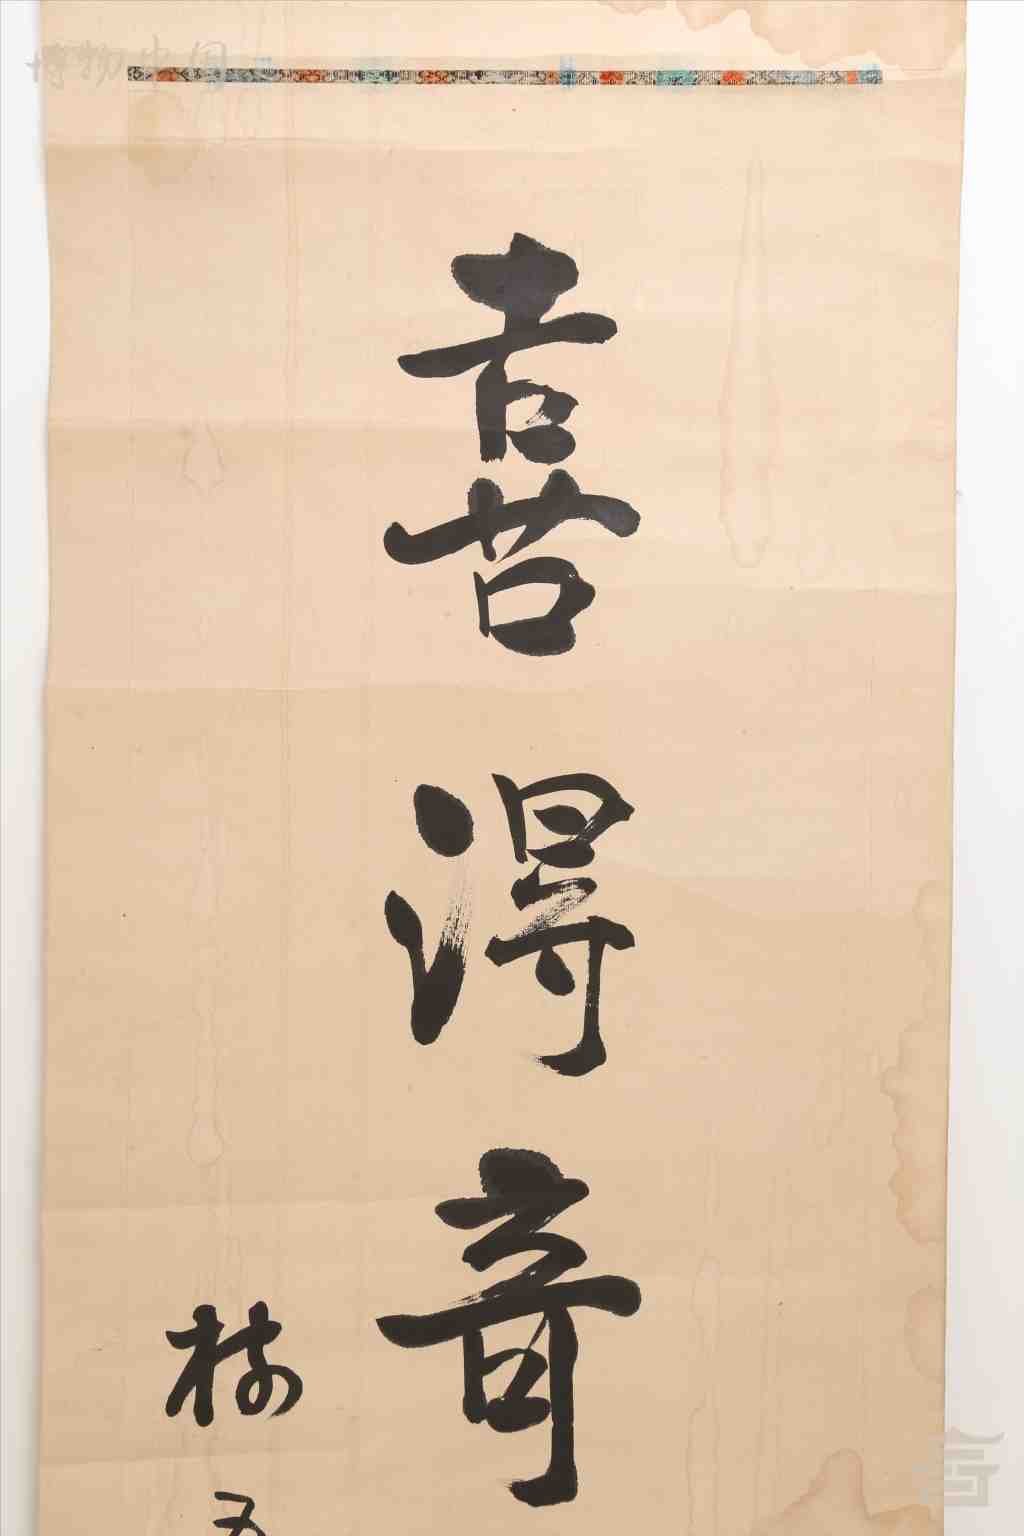 博物中国
喜得奇